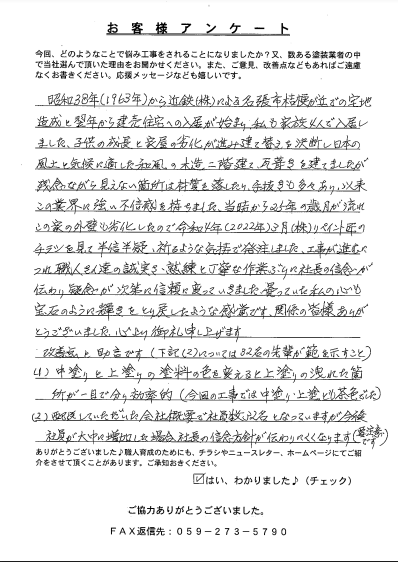 お客様アンケート
今回、どのようなことで悩み工事をされることになりましたか?又、数ある塗装業者の中
で当社選んで頂いた理由をお聞かせください。また、ご意見、改善点などもあればご遠慮
なくお書きください。応援メッセージなども嬉しいです。
昭和38年(1963年)から近鉄(株)による名張市桔梗が丘での宅地
造成と翌年から建売住宅への入居が始まり、私も家族4人で入居し
ました。子供の成長と家屋の劣化が進み建て替えを決断し日本の
風土と気候に適した和風の木造二階建て瓦葺きを建てましたが
残念ながら見えない箇所は材質を落したり、手抜きも多々あり、以来
この業界に強い不信感を持ちました。当時から の歳月が流れ
この家の外壁も劣化したので令和4年(2022年)3月(株) ペイント 
チラシを見て半信半疑、祈るような気持で発注しました。工事が進むに
つれ職人さん達の誠実さ、熟練と丁寧な作業ぶりに社長の信念が
伝わり疑念が次第に信頼に変っていきました。曇っていた私の心も
宝石のように輝きをとり戻したような感覚です。関係の皆様ありが
とうございました。心より御礼申し上げます
改善点と助言です(下記(2)については32名の先輩が範を示すこと)
(1) 中塗りと上塗りの塗料の色を変えると上塗りの洩れた箇
所が一目で分り効率的(今回の工事では中塗り・上塗とも茶色でした)
(2) 配送していただいた会社概要で社員数32名となっていますが今後
社員が大巾に増加した場合、社長の信念方針が伝わりにくくなります(要注意です)
ありがとうございました♪職人育成のためにも、チラシやニュースレター、ホームページにてご紹
介をさせて頂くことがあります。ご承知おきください。
☑はい、わかりました♪(チェック)
ご協力ありがとうございました。
FAX返信先:059-273-5790